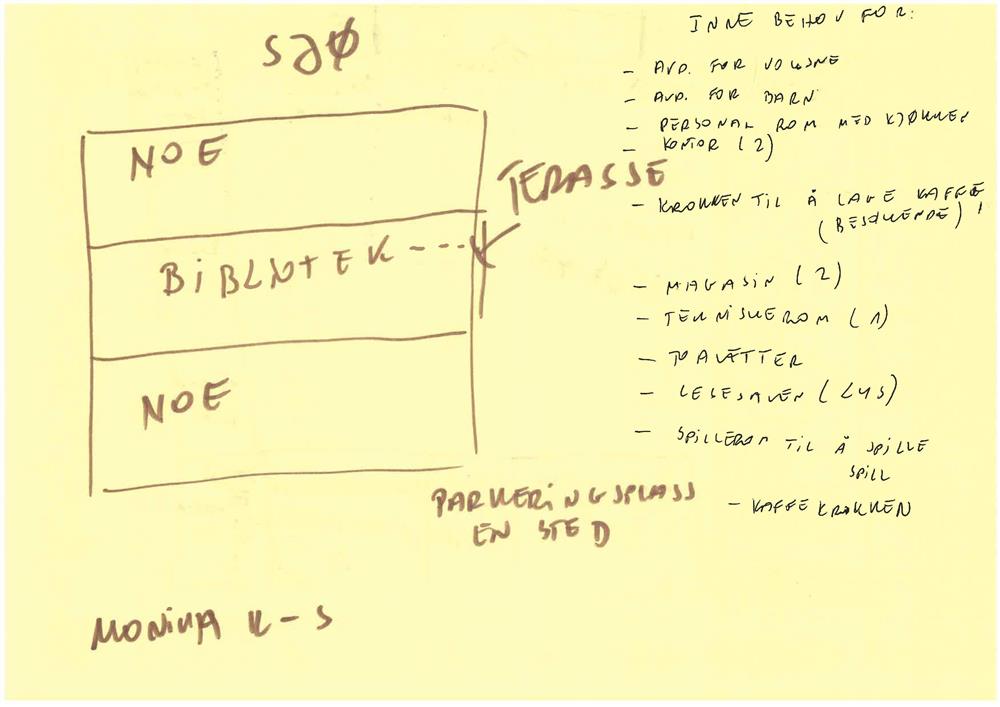 SJØ
NOE
TERASSE
BIBLIOTEK ---
NOE
PARKERINGSPLASS
EN STED
MONIKA K-S
INNE BEHOV FOR:
- AVD. FOR VOKSNE
- AVD. FOR BARN
- PERSONAL ROM MED KJØKKEN
- KONTOR (2)
- KROKKEN TIL Å LAGE KAFFE
(BESØKENDE)!
- MAGASIN (2)
- TEKNISKEROM (1)
- TOALETTER
- LESESALEN (LYS)
- SPILLEROM TIL Å SPILLE
SPILL
- KAFFE KROKKEN